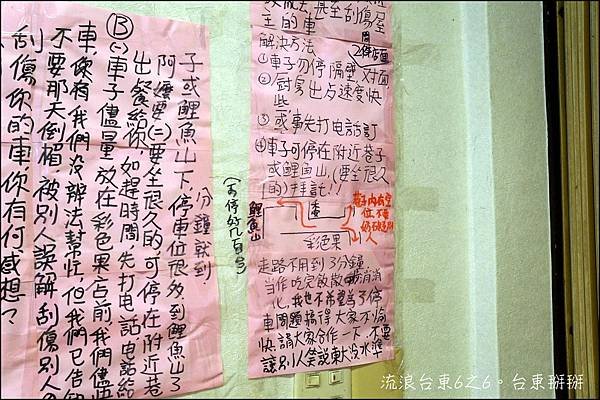 ⑬
(一)車子儘量放在彩色果店前我們儘快
出餐給你,如趕時間先打电話电話給
阿嬤(二)要坐很久的可停在附近巷
子或鯉魚山下,停車位很多到鯉魚山3
分鐘就到
車,你有我們沒辦法幫忙,但我們已告知
不要那天倒楣,被別人誤解刮傷別人的
刮傷你的車你有何感想?
(可停好几百台)
主的車
解決方法
①車子勿停隔壁,对面,
2間店面
②厨房出占速度快
些
③或事先打电話訂
④車子可停在附近巷子
或鯉魚山,(要坐很久
的)拜託!!
鯉魚山
巷
彩色果
巷子內有空
位不要
人
走路不用到3分鐘
當作吃完飯散步消消
化,我也不希望為了停
車問題搞得大家不愉
快請大家合作一下,不要
讓別人笑說東大沒水準
流浪台東6之6。台東掰掰